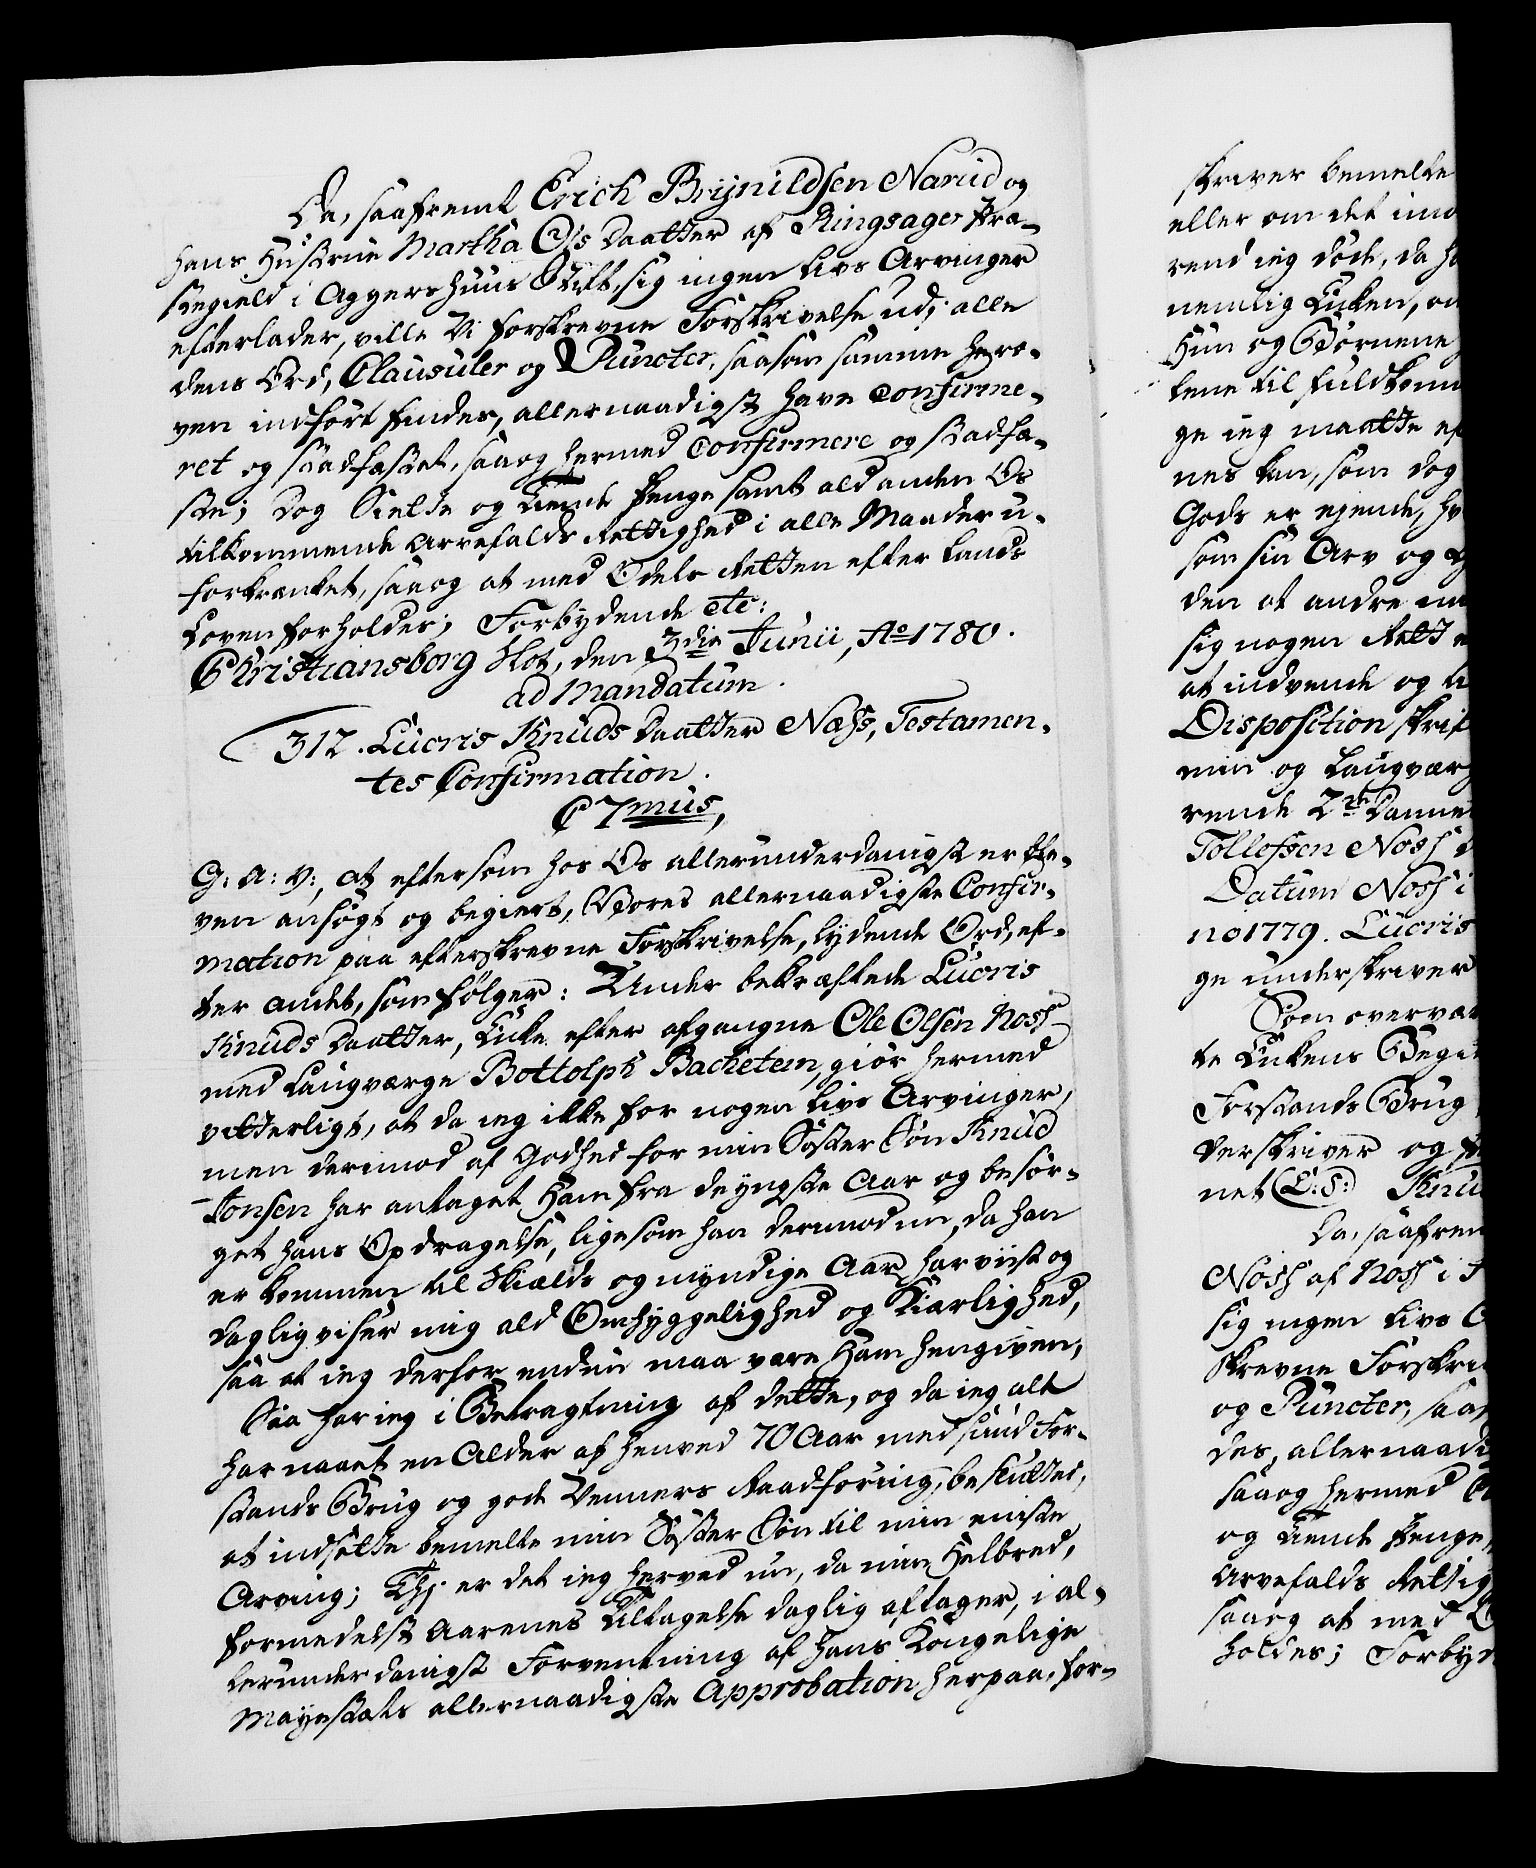 Da, saafremt Erich Brynildsen Narud og
hans Hustrue Martha Ols Daatter af Ringsager Præ-
stegield i Aggershuus Stift, sig ingen Livs Arvinger
efterlader, ville Vi forskrevne Forskrivelse udi alle
dens Ord, Clausuler og Puncter, saasom samme herø-
ven indført findes, allernaadigst have confirme-
ret og stadfæstet, saa og hermed Confirmere og stadfæ-
ste; Dog Sielte og Tiende Penge samt ald anden Os
tilkommende Arvefalds Rettighed i alle Maader u-
forkrænket, saa og at med Odels Retten efter Lands
Loven forholdes; Forbydende etc:
Christiansborg Slot, den 3die Junii, Ao 1780.
ad Mandatum.
312. Lucris Knuds Daatter Næss, Testamen-
tes Confirmation.
C 7mus,
G: A: V:, at eftersom hos Os allerunderdanigst er ble-
ven ansøgt og begiert, Vores allernaadigste Confir-
mation paa efterskrevne Forskrivelse, lydende Ord, ef-
ter andet, som følger: Under bekræftede Lucris
Knuds Daatter, Enke efter afgangne Ole Olsen Noss
med Laugværge Bottolph Bachetem, giør hermed
vitterligt, at da ieg ikke har nogen Livs Arvinger,
men derimod af Godhed for min Søster Søn Knud
Jonsen har antaget Ham fra de yngste Aar og besør-
get hans Opdragelse, ligesom han derimod nu, da han
er kommen til Skiæls og myndige Aar har viist og
daglig viser mig ald Omhyggelighed og Kiærlighed,
saa at ieg derfor endnu maa være Ham hengiven,
Saa har ieg i Betragtning af dette, og da ieg alt
har naaet en Alder af henved 70 Aar med sund For-
stands Brug og gode Venners Raadføring, besluttet,
at indsætte bemelte min Søster Søn til min eniste
Arving; Thi er det ieg herved nu, da min Helbred,
formedelst Aarenes Tiltagelse daglig aftager, i al-
lerunderdanigst Forventning af Hans Kongelige
Mayestæts allernaadigste Approbation herpaa, for-
skriver bemelte
eller om det im
rend ieg døde, da h
nemlig Enken, o
Hun og Børnene
tene til fuldkom
ge ieg maatte ef
nes kan, som dog
Gods er eiende, h
som sin Arv og
den at andre m
sig nogen Rett
at indvende og
Disposition skrif
min og Laugvær
rende 2de Danne
Tollefsen Noss
Datum Noss i
no 1779. Lucris
ge underskriver
Som overvær
te Enkens Begi
Forstands Brug
derskriver og
net (L:S:) Knu
Da, saafrem
Noss af Noss i
sig ingen Livs
skrevne Forskri
og Puncter, saas
des, allernaadi
saa og hermed
og Tiende Penge,
Arvefalds Rettig
saa og at med
holdes; Forby